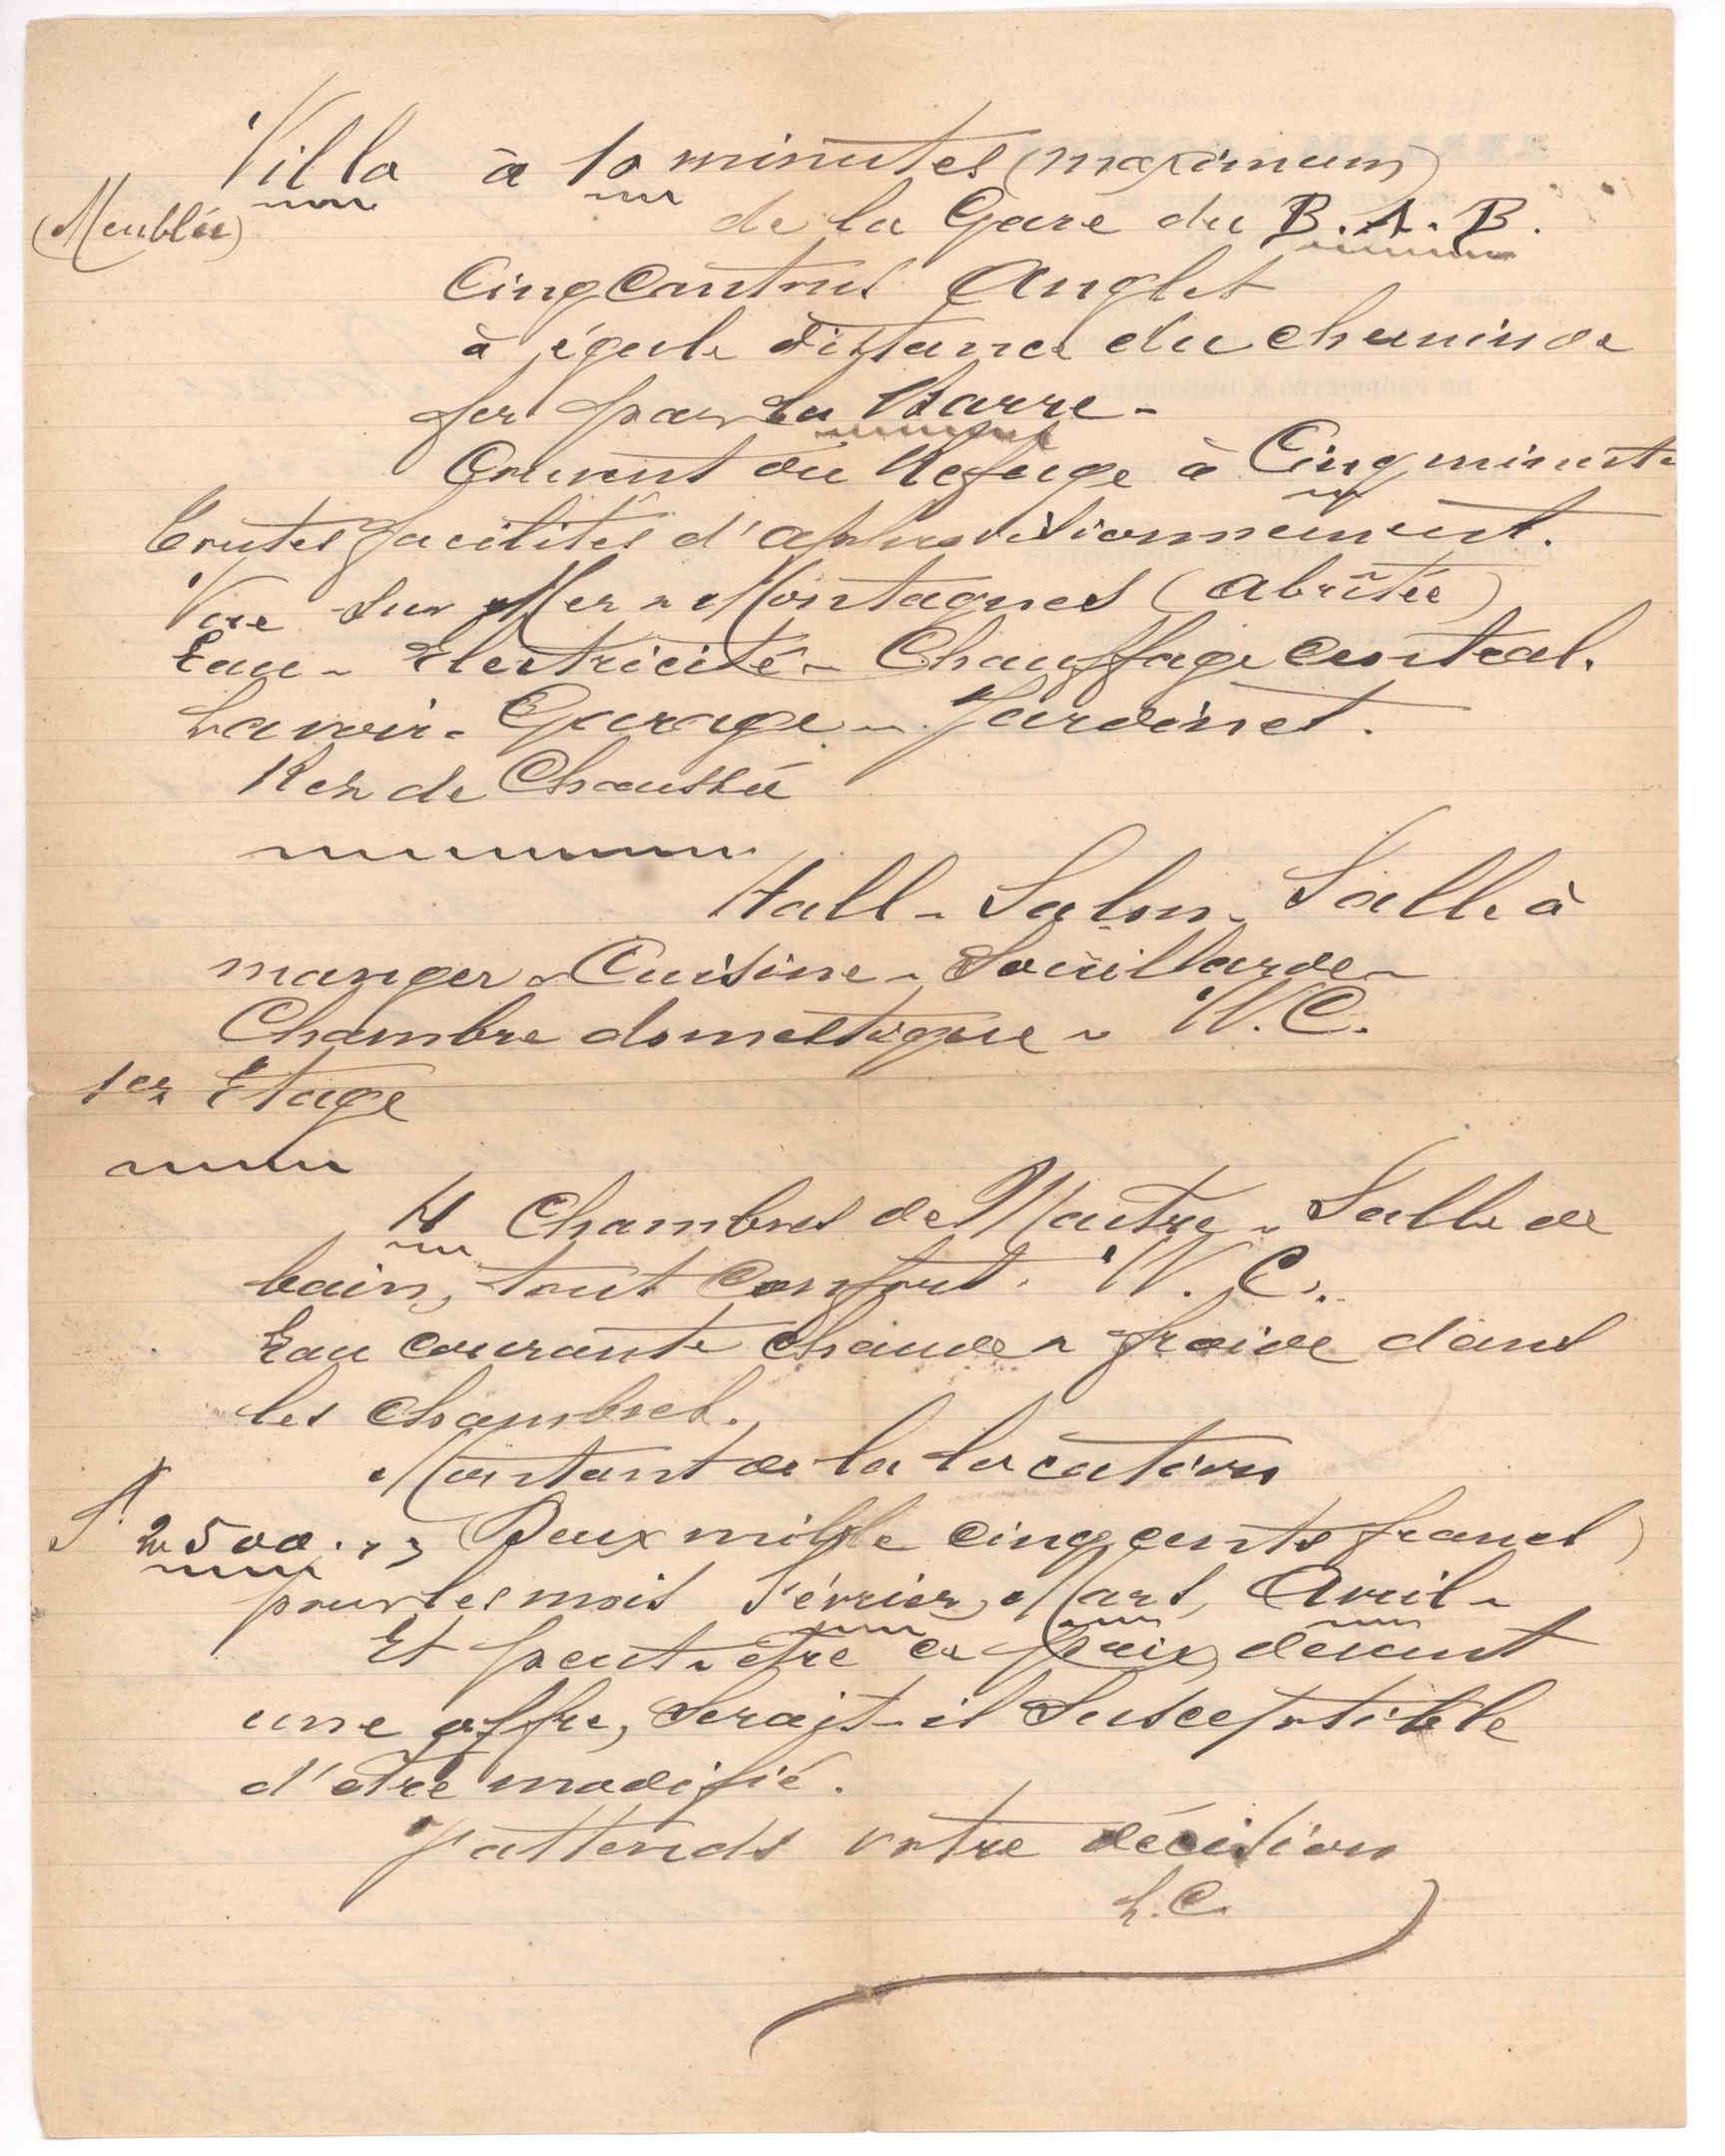 Villa à 10 minutes (maximum)
(Meublée)
de la Gare du B.A.B.
Cinq Cantons Anglet
à égale distance du chemin de
fer par La Barre -
Couvent du Refuge à Cinq minutes
Toutes facilités d'approvisionnement.
Vue sur Mer - Montagnes (abritée)
Eau - Electricité - Chauffage central.
Lavoir - Garage - Jardinet.
Rez de Chaussée
Hall - Salon - Salle à
manger - Cuisine - Souillarde -
Chambre domestique - W.C.
1er Etage
4 Chambres de Maître - Salle de
bain, tout confort. W.C.
Eau courante chaude - froide dans
les chambres.
Montant de la location
2500. Deux mille cinq cents francs)
pour les mois Février, Mars, Avril -
Et peut-etre ce prix, devant
une offre, serait-il susceptible
d'etre modifié.
J'attends votre décision
L.C.